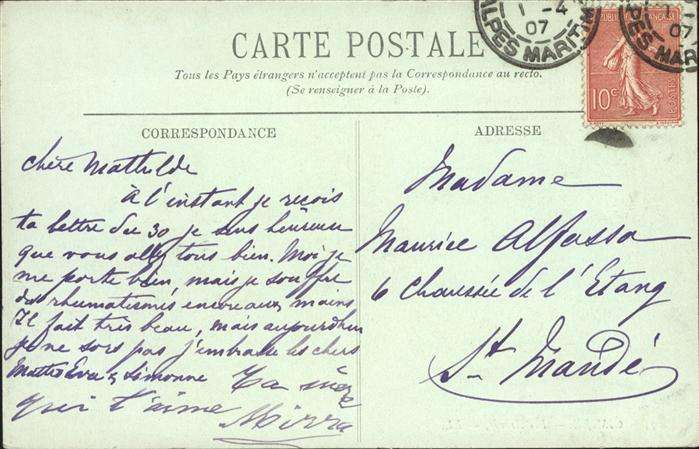 1 -4
07
ALPES MARITIM
RÉPUBLIQUE FRANÇAISE
10c
POSTES
07
CARTE POSTALE
Tous les Pays étrangers n'acceptent pas la Correspondance au recto.
(Se renseigner à la Poste).
CORRESPONDANCE
chère Mathilde
à l'instant je reçois
ta lettre du 30 je suis heureuse
que vous allez tous bien. Moi je
me porte bien, mais je souffre
des rhumatismes encore aux mains
Il fait très beau, mais aujourdhui
je ne sors pas j'embrasse les chers
Eva & Simonne Ta mère
qui t'aime Mirra
ADRESSE
Madame
Maurice Alfassa
6 Chaussée de l'Etang
St Mandé